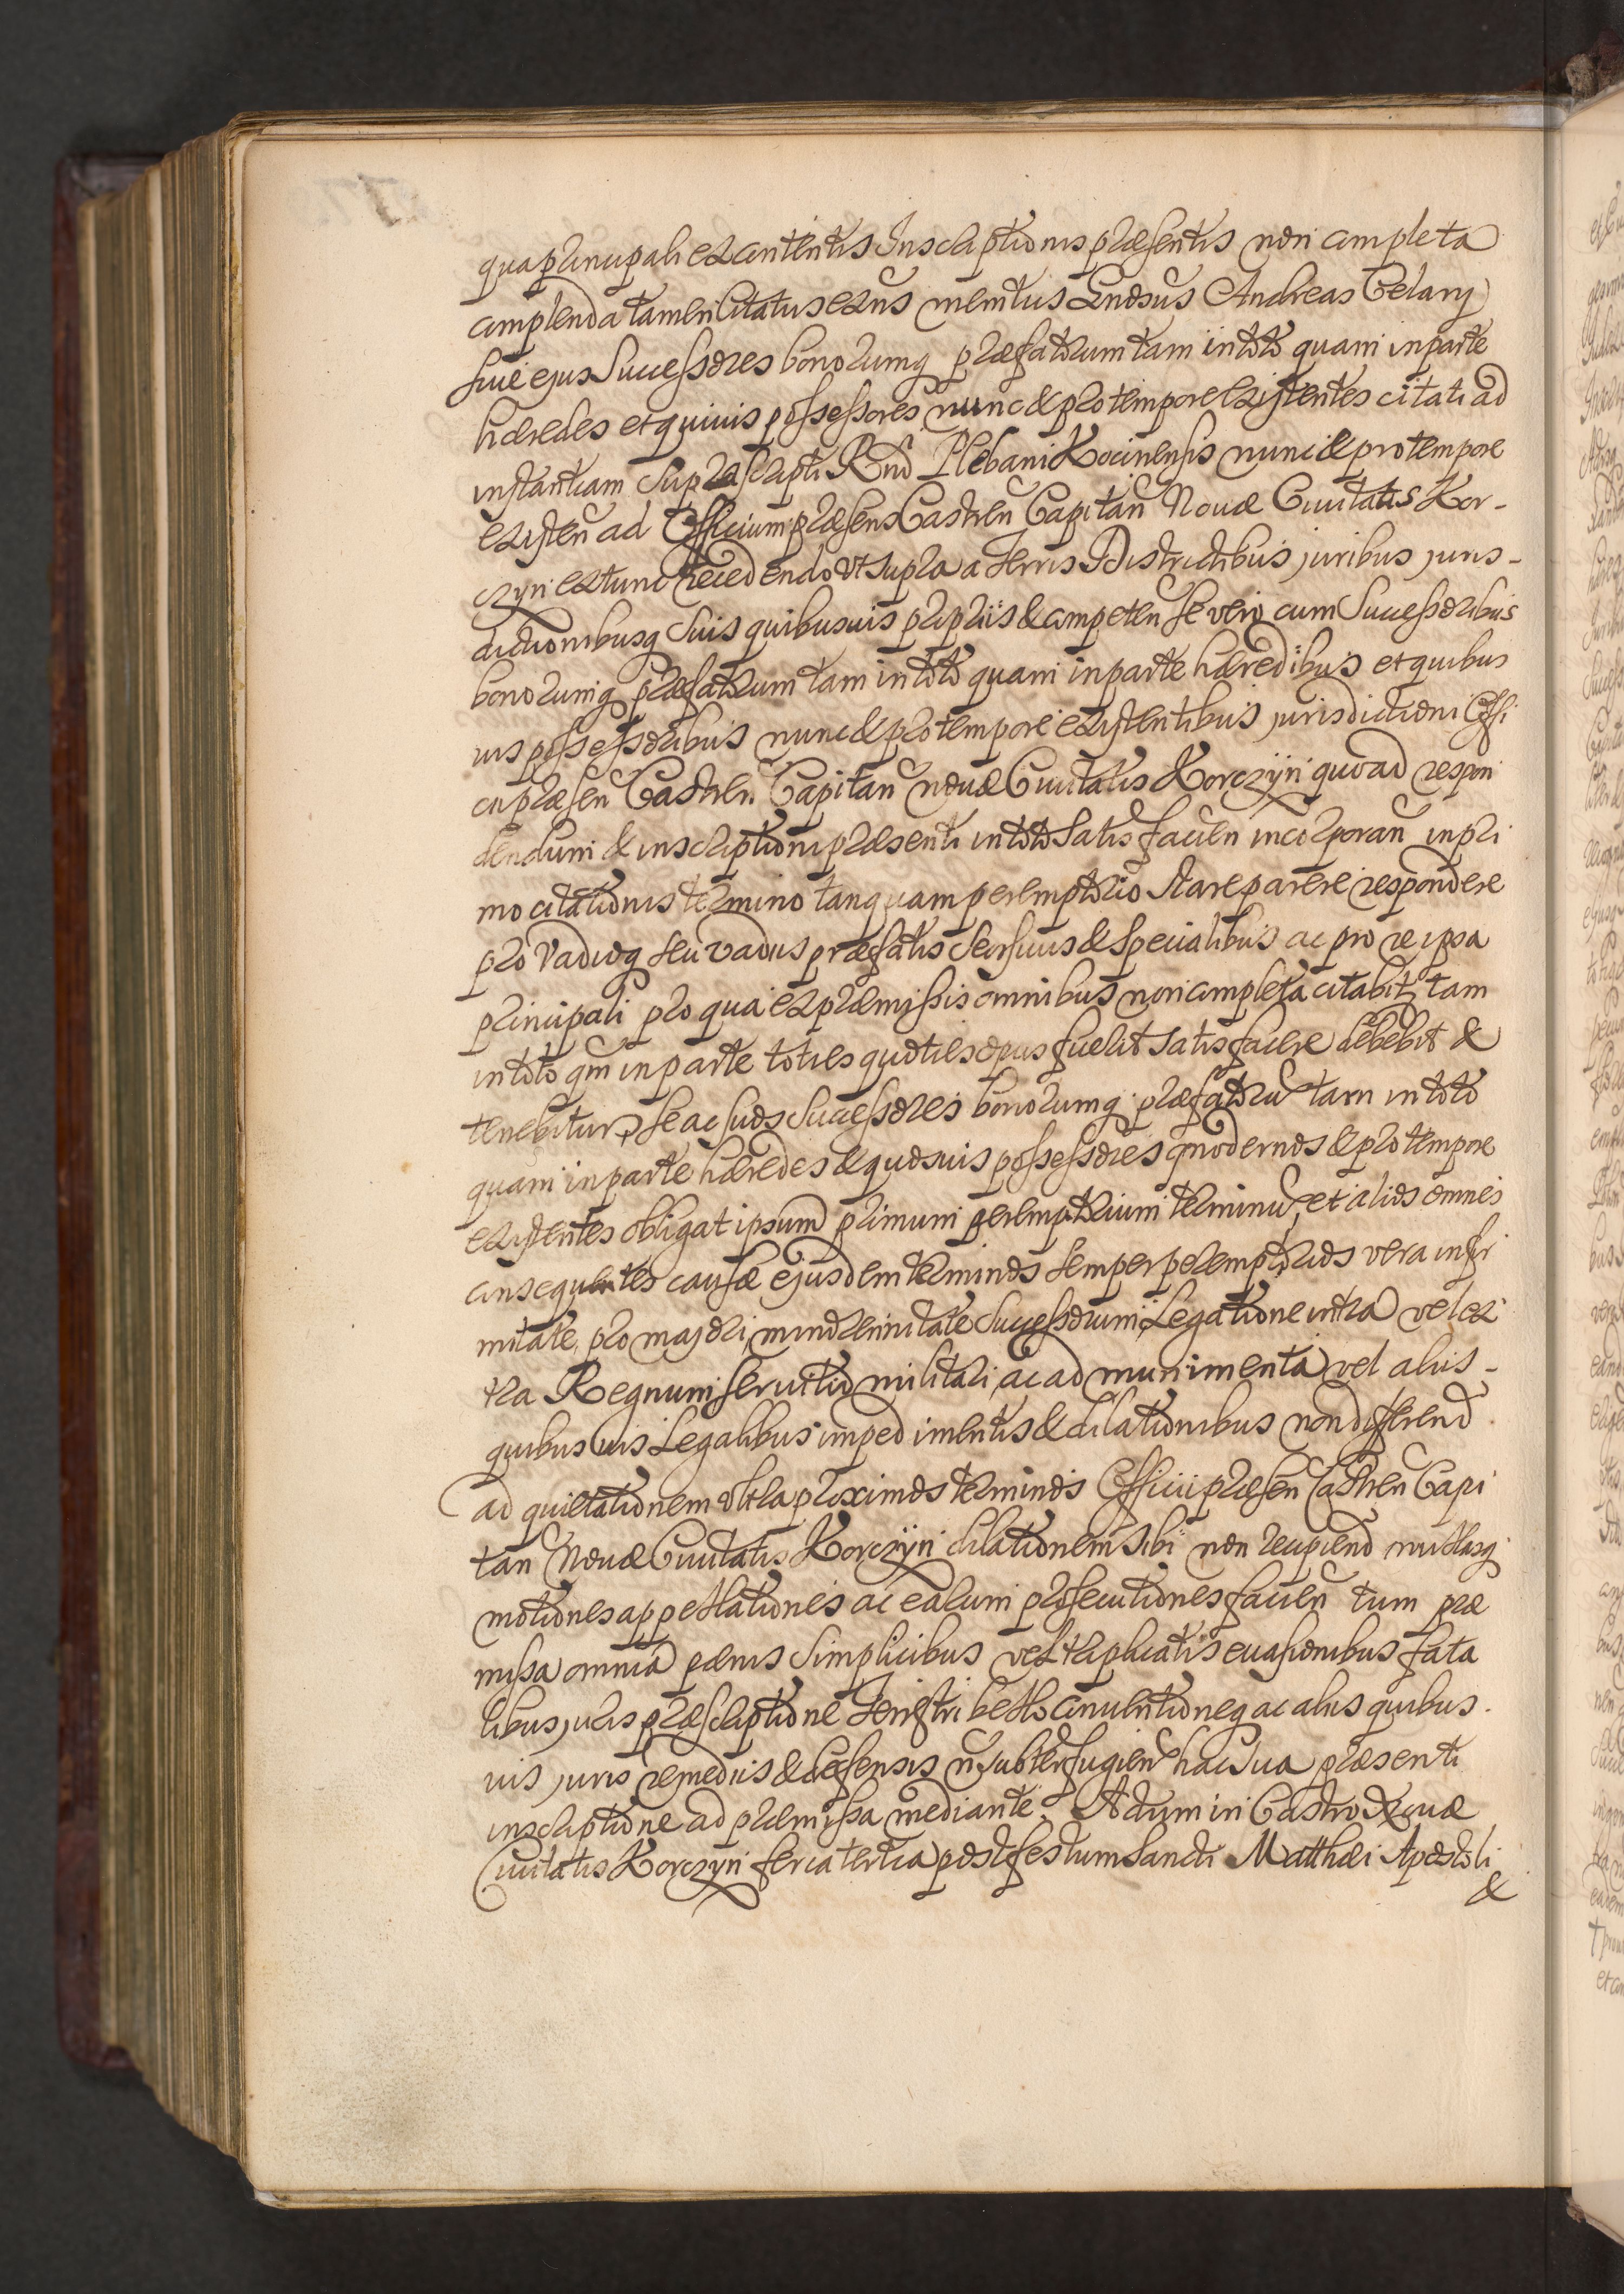 qua principali ex contentis Inscriptionis præsentis non completa
complenda tamen Citatus exn̄s memtus Gn̄osus Andreas Celary
siue ejus Successores bonorumq præfatorum tam in toto quam in parte
hæredes et quiuis possessores nunc & pro tempore existentes citati ad
instantiam suprascripti Rn̄d Plebani Kocinensis nunc & pro tempore
existen̄ ad Officium præsens Castren̄ Capitan̄ Nouæ Ciuitatis Kor-
czyn extunc recedendo vt supra a terris Districtibus, juribus, juris-
dictionibusq suis quibusuis proprijs & competen se vero cum Successoribus
bonorumq præfatorum tam in toto quam in parte hæredibus et quibus
uis possessoribus nunc & pro tempore existentibus, jurisdictioni Offi
cij præsen̄ Castren̄ Capitan̄ nouæ Ciuitatis Korczyn quoad respon
dendum & inscriptioni præsenti in toto satisfacien incorporan̄ in pri
mo citationis termino tanquam peremptorio stare parere respondere
pro Vadioq seu vadiis præfatis seorsiuis & specialibus ac pro re ipsa
principali pro qua ex præmissis omnibus non completa citabitᷣ tam
in toto qm̄ in parte toties quoties opus fuerit satisfacere debebit &
tenebitur, se ac suos successores bonorumq præfatorū tam in toto
quam in parte hæredes & quosuis possessores modernos & pro tempore
existentes obligat ipsum primum peremptorium terminū, et alios omnes
consequentes causæ ejusdem terminos semper peremptorios vera infir
mitate, pro majori, minorennitate Successorum Legatione intra vel ex
tra Regnum seruitio militari, ac ad munimenta vel aliis-
quibusuis Legalibus impedimentis & dilationibus non differend
ad quietationem vltra proximos terminos Officii præsen̄ Castren̄ Capi
tan̄ Nouæ Ciuitatis Korczyn dilationem sibi non recipiend nullasq
motiones appellationes ac earum prosecutiones facien̄ tum præ
missa omnia pænis simplicibus vel triplicatis euasionibus fata
libus, juris præscriptione terrestri bello conuentioneq ac aliis quibus-
uis juris remediis & defensis n̄ subterfugien̄ hac sua præsenti
inscriptione ad præmissa mediante. Actum in Castro Nouæ
Ciuitatis Korczyn feria tertia post festum Sancti Matthæi Apostoli
&